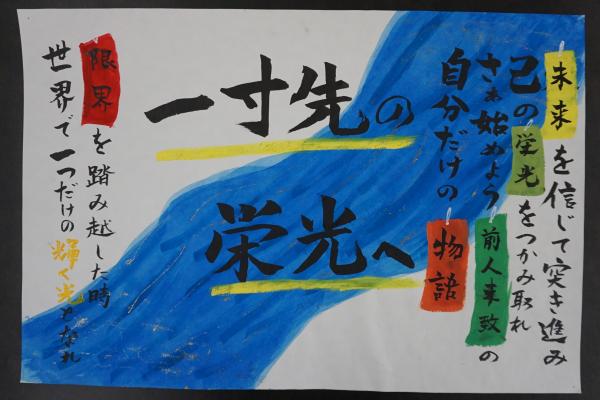 未来を信じて突き進み
己の栄光をつかみ取れ
さぁ始めよう前人未致の
自分だけの物語
一寸先の
栄光へ
限界を踏み越した時
世界で一つだけの輝く光となれ